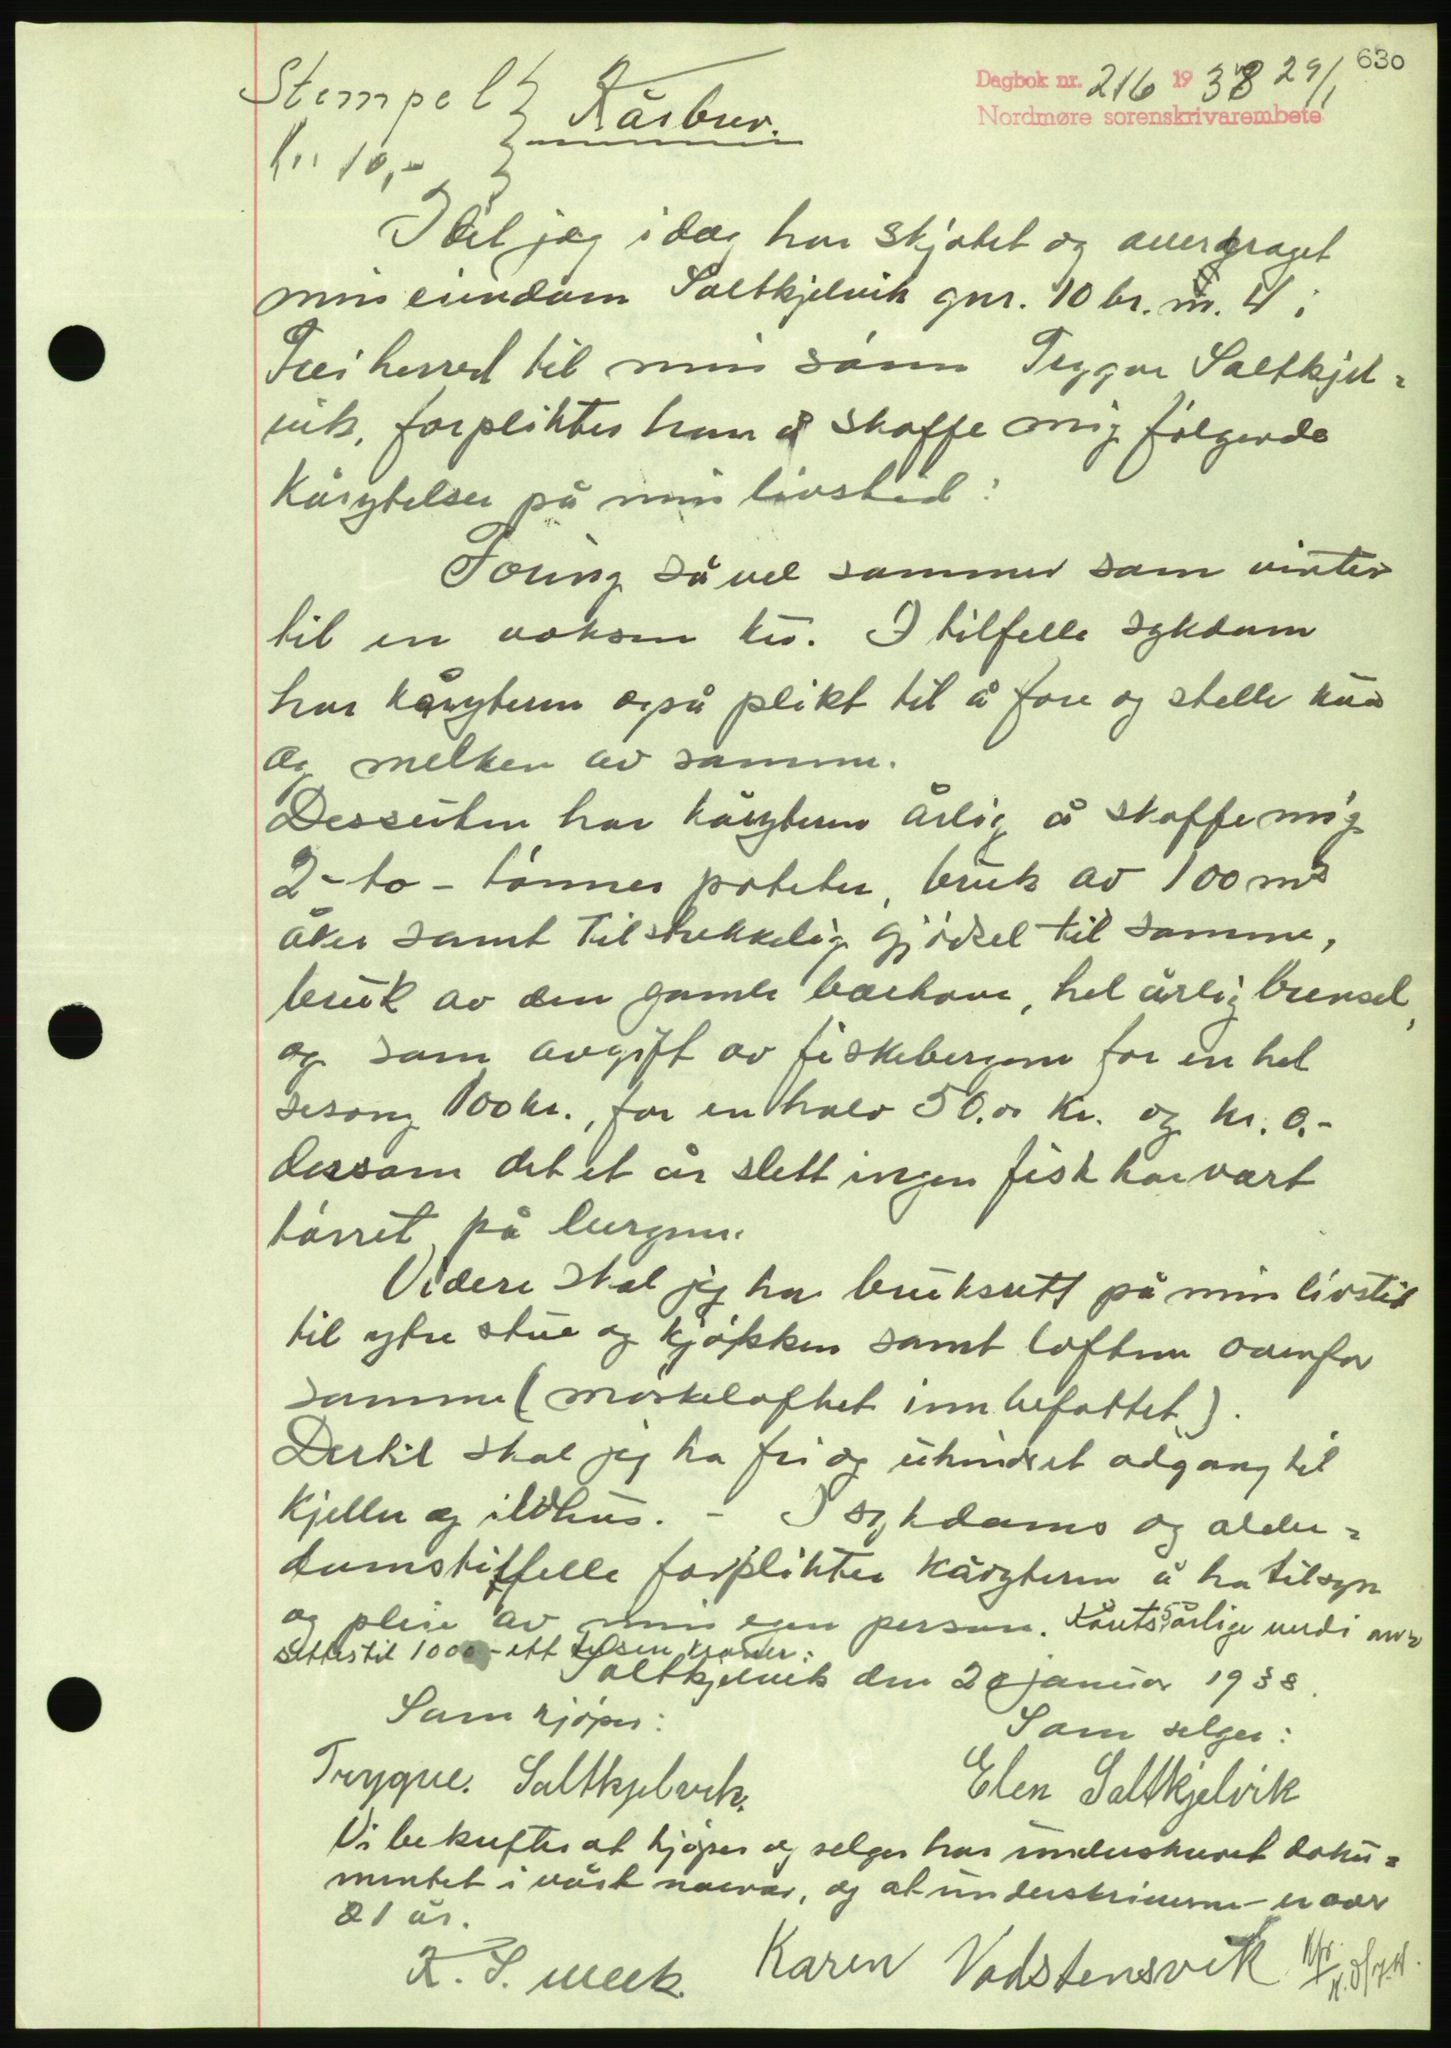 630
Stempel } Kårbrev.
Dagbok nr. 216 1938 29/1
Nordmøre sorenskrivarembete
kr. 10,-
Idet jeg idag har skjøtet og overdraget
min eiendom Saltkjelvik gnr. 10 br. nr. 4 i
Frei herred til min sønn Trygve Saltkjel=
vik, forpliktes han å skaffe mig følgende
kårytelser på min livstid:
Foring så vel sommer som vinter
til en voksen ku. I tilfelle sykdom
har kåryteren også plikt til å fore og stelle kua
og melken av samme.
Dessuten har kåryteren årlig å skaffe mig
2-to-tønner poteter, bruk av 100 m²
åker samt tilstrekkelig gjødsel til samme,
bruk av den gamle bærhave, hel årlig brensel,
og som avgift av fiskebergene for en hel
sesong 100 kr., for en halv 50.00 kr. og kr. 0.-
dersom det et år slett ingen fisk har vært
tørret på bergene.
Videre skal jeg ha bruksrett på min livstid
til ytre stue og kjøkken samt loftene ovenfor
samme (mørkeloftet innbefattet).
Dertil skal jeg ha fri og uhindret adgang til
kjeller og ildhus. - I sykdoms og alder=
domstilfelle forplikter kåryteren å ha tilsyn
og pleie av min egen person. Kårets årlige verdi an=
settes til 1000 - ett tusen kroner:
Saltkjelvik den 20 januar 1938.
Som kjøper: Som selger:
Trygve. Saltkjelvik. Elen Saltkjelvik
Vi bekrefter at kjøper og selger har underskrevet doku=
mentet i vårt nærvær, og at underskriverne er over
21 år.
K. S. Meek Karen Vadstensvik